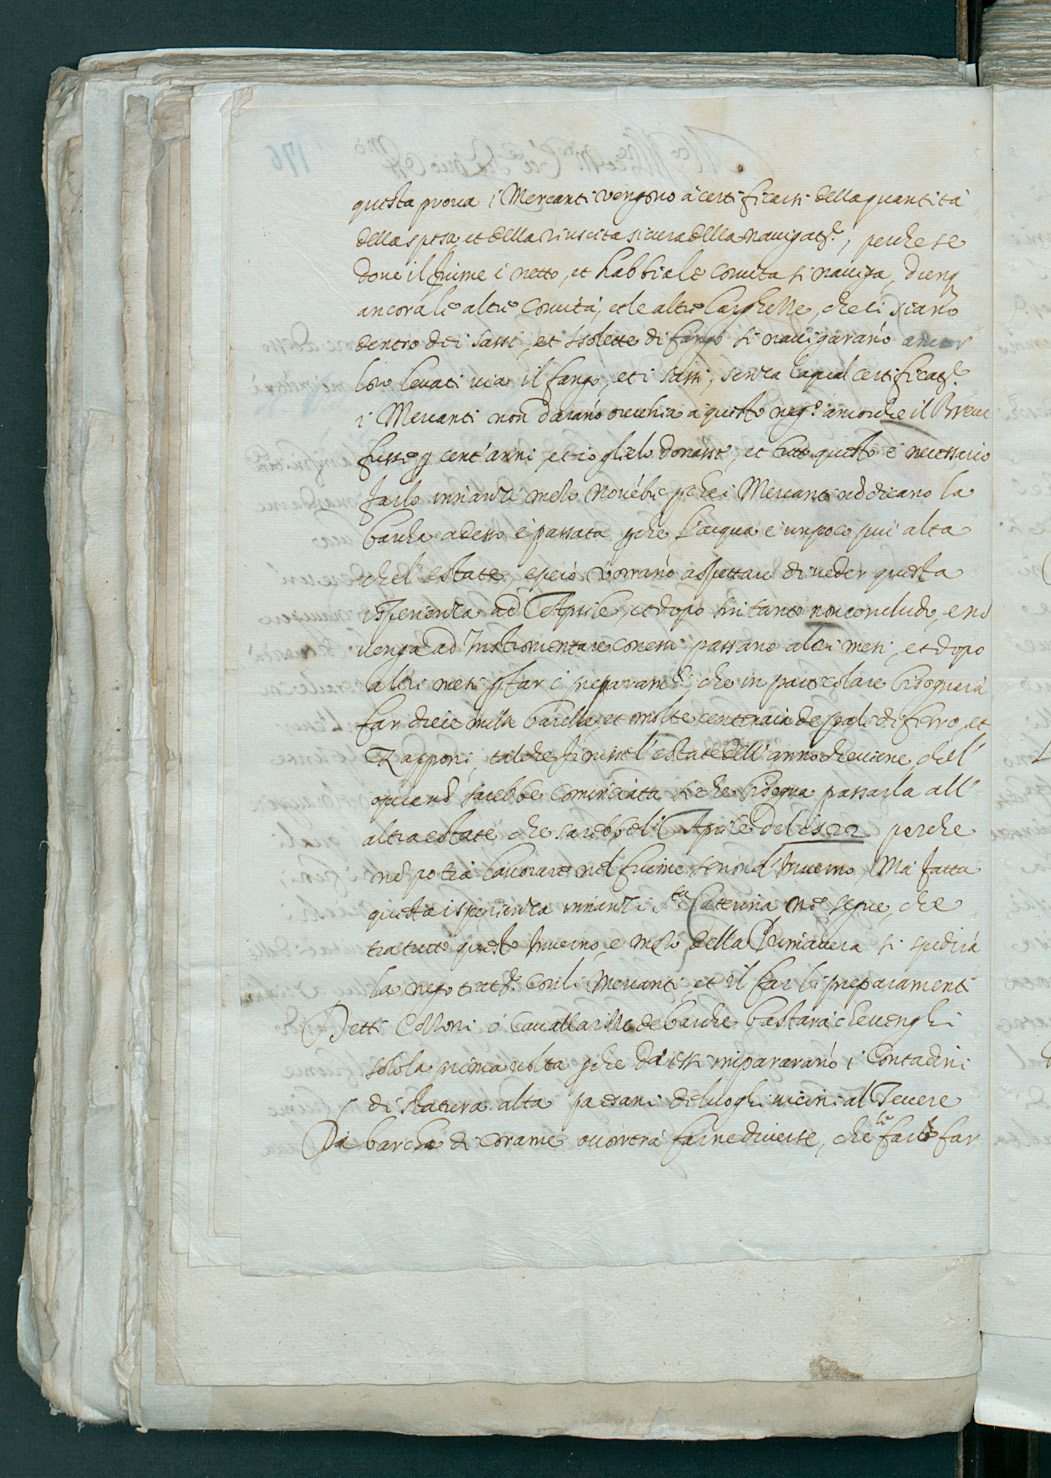 questa proua i Mercanti vengono à certificarsi della quantità
della spesa, et della riuscita sicura della nauigat.e, perche se
doue il fiume è netto, et habbiele comita si nauiga,
ancora le altre comità, et le altre larghezze, che si siano
dentro dei sassi, et Isolette di fango si nauigarano ancor
loro leuati uia il fango, et i sassi, senza la qual certificat.e
i Mercanti non darano orecchia a questo neg.o ancorche il Breue
fusse p cent'anni, et io glielo donassi, et tutto questo è necessario
farlo innanzi mezo Nouẽbre pche i Mercanti nõ dicano la
barcha adesso è passata pche l'acqua è un poco piu alta
che l'estate, e perciò vorrano aspettare di ueder questa
esperienza ad Aprile, et dopo in tanto non concludo, e nõ
uenga ad Instromentare con essi passano altri mesi, et dopo
altri mesi p far i preparamti, che in particolare bisognerà
far diece mila barelle, et molte centinaia de pali di ferro, et
Zapponi, talche finirest l'estate dell'anno che uiene, che l'
opera nõ sarebbe cominciata si che bisogna passarla all'
altra estate, che sarebbe l'Aprile del 1522 perche
nõ potrà lauorare nel fiume se non d'Inuerno, Ma fatta
questa isperienza innanzi S.ta Caterina ne segue, che
tra tutto questo Inuerno, e mezo della Primauera si spedirà
la negotiat.e con li Mercanti, et il far li preparamenti
Detti Colloni ò Cauallari delle barche bastarà che uenghi
solo la prima uolta pche da essi impararano i Contadini
di statura alta paesani de luoghi uicini al Teuere
Dà barche di corame occorrerà farne diuerse, che le farò far